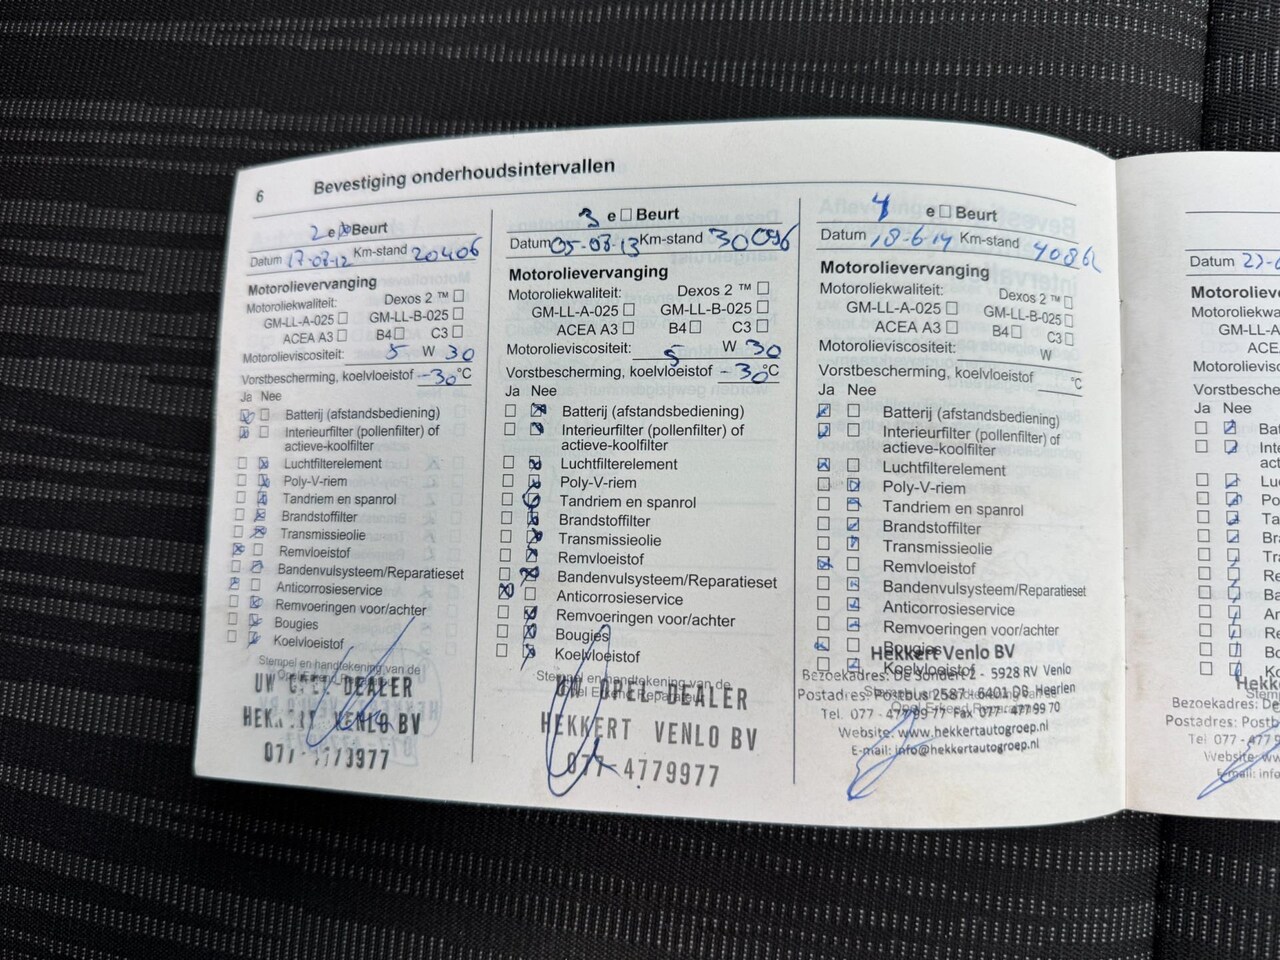 6 Bevestiging onderhoudsintervallen
2 e Beurt
Datum 17-07-12 Km-stand 20406
Motorolievervanging
Motoroliekwaliteit: Dexos 2 ™
GM-LL-A-025 GM-LL-B-025
ACEA A3 B4 C3
Motorolieviscositeit: 5 W 30
Vorstbescherming, koelvloeistof -30 °C
Ja Nee
Batterij (afstandsbediening)
Interieurfilter (pollenfilter) of
actieve-koolfilter
Luchtfilterelement
Poly-V-riem
Tandriem en spanrol
Brandstoffilter
Transmissieolie
Remvloeistof
Bandenvulsysteem/Reparatieset
Anticorrosieservice
Remvoeringen voor/achter
Bougies
Koelvloeistof
Stempel en handtekening van de
UW OPEL DEALER
HEKKERT VENLO BV
077-4773977
3 e Beurt
Datum 05-07-13 Km-stand 30096
Motorolievervanging
Motoroliekwaliteit: Dexos 2 ™
GM-LL-A-025 GM-LL-B-025
ACEA A3 B4 C3
Motorolieviscositeit: 5 W 30
Vorstbescherming, koelvloeistof -30 °C
Ja Nee
Batterij (afstandsbediening)
Interieurfilter (pollenfilter) of
actieve-koolfilter
Luchtfilterelement
Poly-V-riem
Tandriem en spanrol
Brandstoffilter
Transmissieolie
Remvloeistof
Bandenvulsysteem/Reparatieset
Anticorrosieservice
Remvoeringen voor/achter
Bougies
Koelvloeistof
Stempel en handtekening van de
Opel Erkend Reparateur
UW OPEL DEALER
HEKKERT VENLO BV
077-4779977
4 e Beurt
Datum 18-6-14 Km-stand 40862
Motorolievervanging
Motoroliekwaliteit: Dexos 2 ™
GM-LL-A-025 GM-LL-B-025
ACEA A3 B4 C3
Motorolieviscositeit: W
Vorstbescherming, koelvloeistof °C
Ja Nee
Batterij (afstandsbediening)
Interieurfilter (pollenfilter) of
actieve-koolfilter
Luchtfilterelement
Poly-V-riem
Tandriem en spanrol
Brandstoffilter
Transmissieolie
Remvloeistof
Bandenvulsysteem/Reparatieset
Anticorrosieservice
Remvoeringen voor/achter
Bougies
Koelvloeistof
Hekkert Venlo BV
Bezoekadres: De Sondert 2 - 5928 RV Venlo
Postadres: Postbus 2587 - 6401 DB Heerlen
Opel Erkend Reparateur
Tel. 077 - 477 99 77 Fax 077 - 477 99 70
Website: www.hekkertautogroep.nl
E-mail: info@hekkertautogroep.nl
Datum
Motorolieve
Motoroliekwa
GM-LL-A
ACE
Motorolievisc
Vorstbescher
Ja Nee
Bat
Inte
act
Lu
Po
Ta
Br
Tr
Re
Ba
An
Re
Bo
Ko
Hekk
Bezoekadres: De
Postadres: Postb
Tel 077 - 477 9
Website: ww
E-mail: info